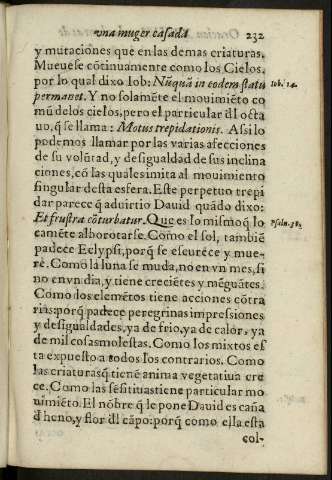 vna muger casada 232
y mutaciones que en las demas criaturas.
Mueuese cõtinuamente como los Cielos,
por lo qual dixo Iob: Nũquã in eodem statu Iob. 14.
permanet. Y no solamẽte el mouimiẽto co
mũ de los cielos, pero el particular d̃l octa
uo, q̃ se llama: Motus trepidationis. Assi lo
podemos llamar por las varias afecciones
de su volũtad, y desigualdad de sus inclina
ciones, cõ las quales imita al mouimiento
singular desta esfera. Este perpetuo trepi
dar parece q̃ aduirtio Dauid quãdo dixo:
Et frustra cõturbatur. Que es lo mismo q̃ lo Psalm. 38.
camẽte alborotarse. Como el sol, tambiẽ
padece Eclypsi, porq̃ se escurece y mue-
re. Como la luna se muda, no en vn mes, si
no en vn dia, y tiene creciẽtes y mẽguãtes.
Como los elemẽtos tiene acciones cõtra
rias: porq̃ padece peregrinas impressiones
y desigualdades, ya de frio, ya de calor, ya
de mil cosas molestas. Como los mixtos es
ta expuesto a todos los contrarios. Como
las criaturas q̃ tienẽ anima vegetatiua cre
ce. Como las sẽsitiuas tiene particular mo
uimiẽto. El nõbre q̃ le pone Dauid es caña
d̃ heno, y flor d̃l cãpo: porq̃ como ella esta
col-